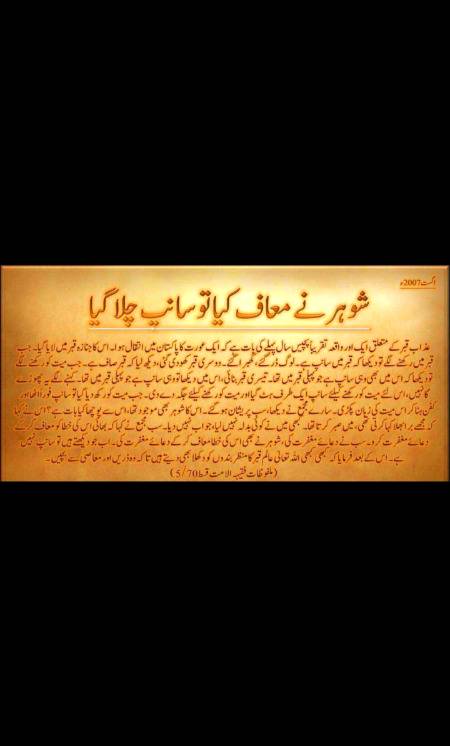 اگست 2007ء
شوہر نے معاف کیا تو سانپ چلا گیا
عذاب قبر کے متعلق ایک اور واقعہ تقریباً پچیس سال پہلے کی بات ہے کہ ایک عورت کا پاکستان میں انتقال ہوا۔ اس کا جنازہ قبر میں لایا گیا۔ جب
قبر میں رکھنے لگے تو دیکھا کہ قبر میں سانپ ہے۔ لوگ ڈر گئے، گھبرا گئے۔ دوسری قبر کھودی گئی، دیکھ لیا کہ قبر صاف ہے۔ جب میت کو رکھنے لگے
تو دیکھا کہ اس میں بھی وہی سانپ ہے جو پہلی قبر میں تھا۔ تیسری قبر بنائی، اس میں دیکھا تو وہی سانپ ہے جو پہلی قبر میں تھا۔ کہنے لگے یہ چھوڑے
گا نہیں، اس لئے میت کو رکھنے کیلئے سانپ ایک طرف ہٹ گیا اور میت کو رکھنے کیلئے جگہ دے دی۔ جب میت کو رکھ دیا گیا تو سانپ فوراً اٹھا اور
کفن ہٹا کر اس میت کی زبان پکڑی۔ سارے مجمع نے دیکھا، سب پریشان ہو گئے۔ اس کا شوہر بھی موجود تھا، اس سے پوچھا کیا بات ہے؟ اس نے کہا
کہ مجھے برا بھلا کہا کرتی تھی، میں صبر کرتا تھا۔ کبھی میں نے کوئی بدلہ نہیں لیا، جواب نہیں دیا۔ سب مجمع نے کہا کہ بھائی اس کی خطا کو معاف کر کے
دعائے مغفرت کرو۔ سب نے دعائے مغفرت کی، شوہر نے بھی اس کی خطا معاف کر کے دعائے مغفرت کی۔ اب جو دیکھتے ہیں تو سانپ نہیں
ہے۔ اس کے بعد فرمایا کہ کبھی کبھی اللہ تعالیٰ عالم قبر کا منظر بندوں کو دکھلا بھی دیتے ہیں تاکہ وہ ڈریں اور معاصی سے بچیں۔
(ملفوظات فقیہ الامت قسط 5/70)